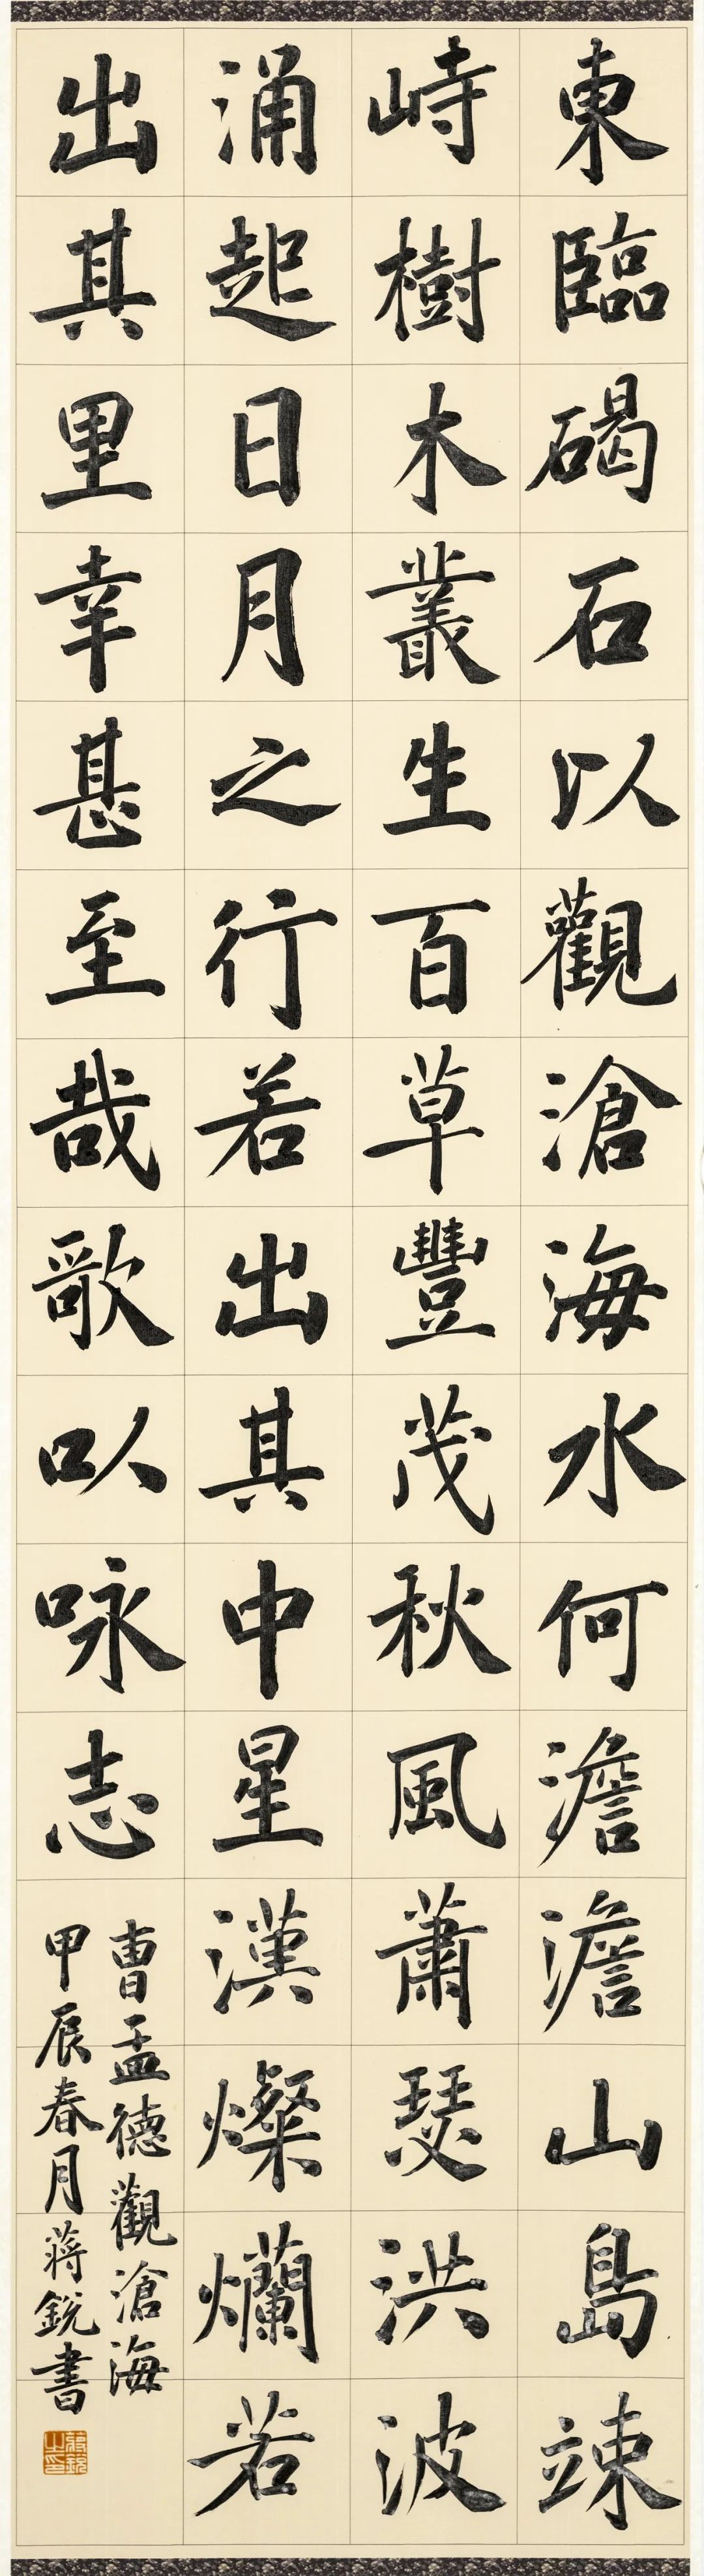 東臨碣石以觀滄海水何澹澹山島竦
峙樹木叢生百草豐茂秋風蕭瑟洪波
涌起日月之行若出其中星漢燦爛若
出其里幸甚至哉歌以咏志
曹孟德觀滄海
甲辰春月蔣銳書
蔣銳之印